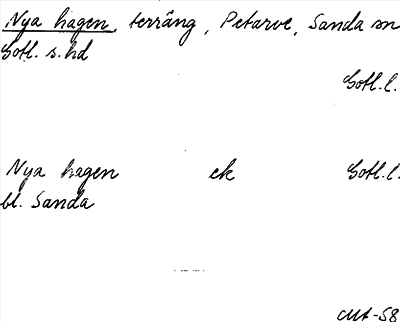 Nya hagen, terräng, Petarve, Sanda sn
Gotl. s. hd
Gotl. l.
Nya hagen ek Gotl. l.
bl. Sanda